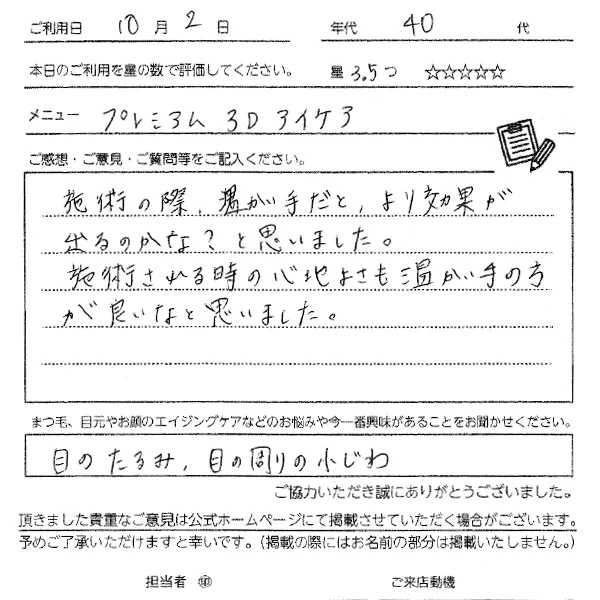 ご利用日 10 月 2 日 年代 40 代
本日のご利用を星の数で評価してください。 星 3.5 つ ☆☆☆☆☆
メニュー プレミアム 3D アイケア
ご感想・ご意見・ご質問等をご記入ください。
施術の際、温かい手だと、より効果が
出るのかな？と思いました。
施術される時の心地よさも温かい手の方
が良いなと思いました。
まつ毛、目元やお顔のエイジングケアなどのお悩みや今一番興味があることをお聞かせください。
目のたるみ、目の周りの小じわ
ご協力いただき誠にありがとうございました。
頂きました貴重なご意見は公式ホームページにて掲載させていただく場合がございます。
予めご了承いただけますと幸いです。（掲載の際にはお名前の部分は掲載いたしません。）
担当者 ㊞ ご来店動機